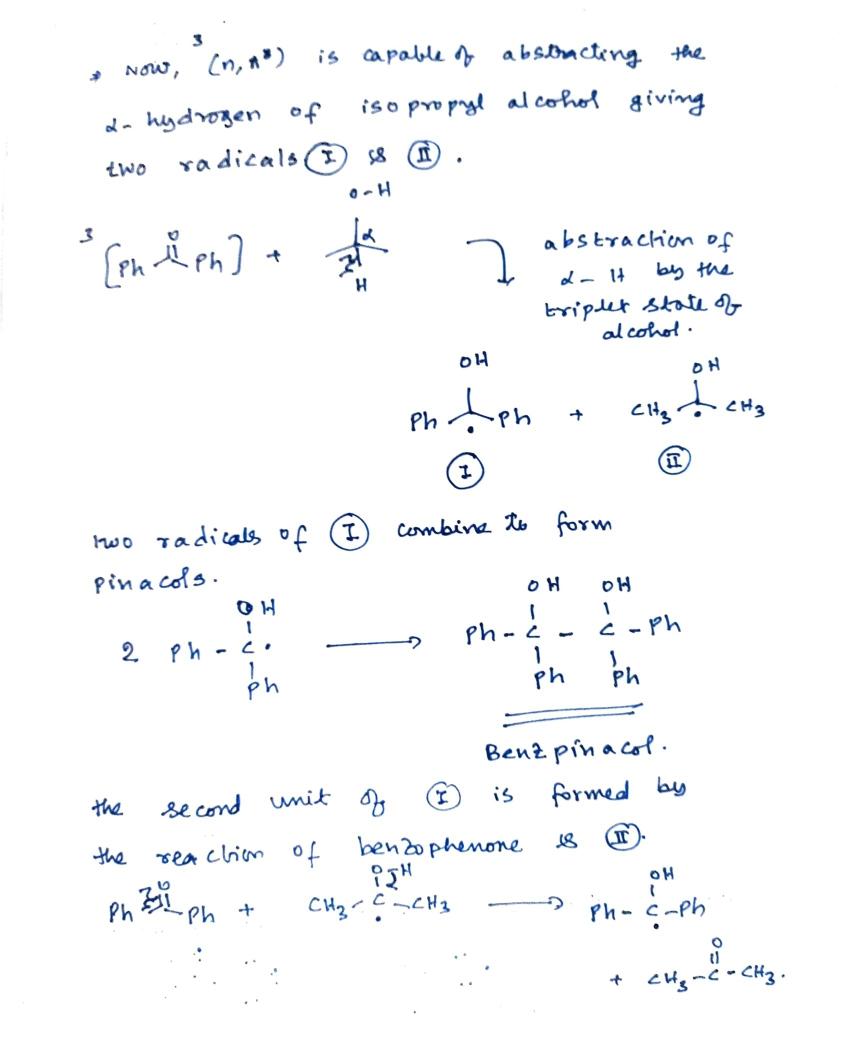 * Now, ³(n, π*) is capable of abstracting the
α- hydrogen of isopropyl alcohol giving
two radicals I & II.
O-H
³[Ph O Ph] + α H
abstraction of
α- H by the
triplet state of
alcohol.
OH OH
Ph Ph + CH3 CH3
I II
two radicals of I combine to form
pinacols.
OH OH OH
2 Ph - C· ⟶ Ph - C - C - Ph
Ph Ph Ph
Benzpinacol.
the second unit of I is formed by
the reaction of benzophenone & II.
O O H OH
Ph Ph + CH3 - C - CH3 ⟶ Ph - C - Ph
O
+ CH3 - C - CH3.